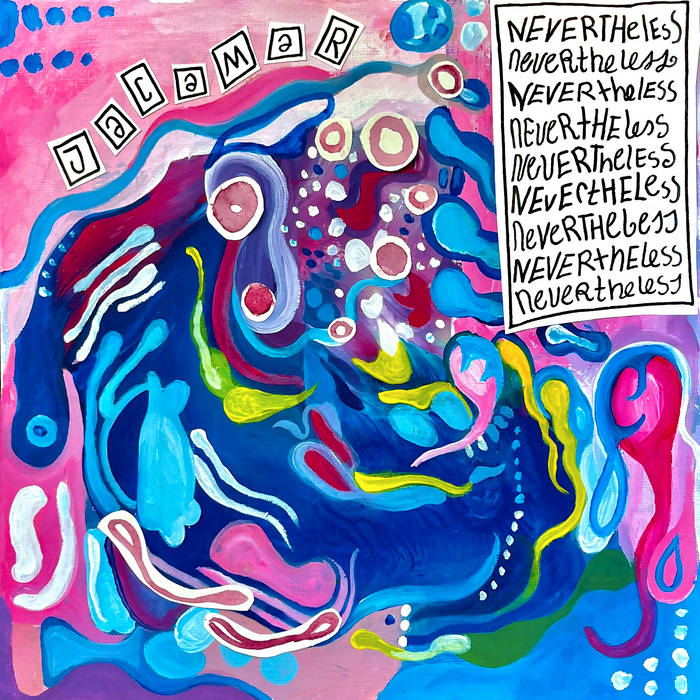 JaCaMaR
NEVERTHeLESS
neveRtheLess
NEVERtheLESS
neveRtHELess
NeVERTheLESS
NeVERtHELess
neveRTHeLess
NEVERtheLess
neveRtheless